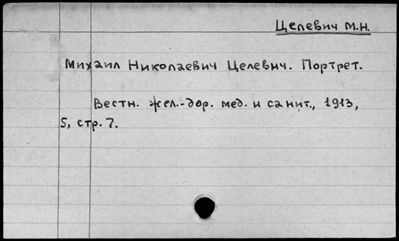 Целевич М.Н.
Михаил Николаевич Целевич. Портрет.
Вестн. жел.-дор. мед. и санит., 1913,
5, стр. 7.